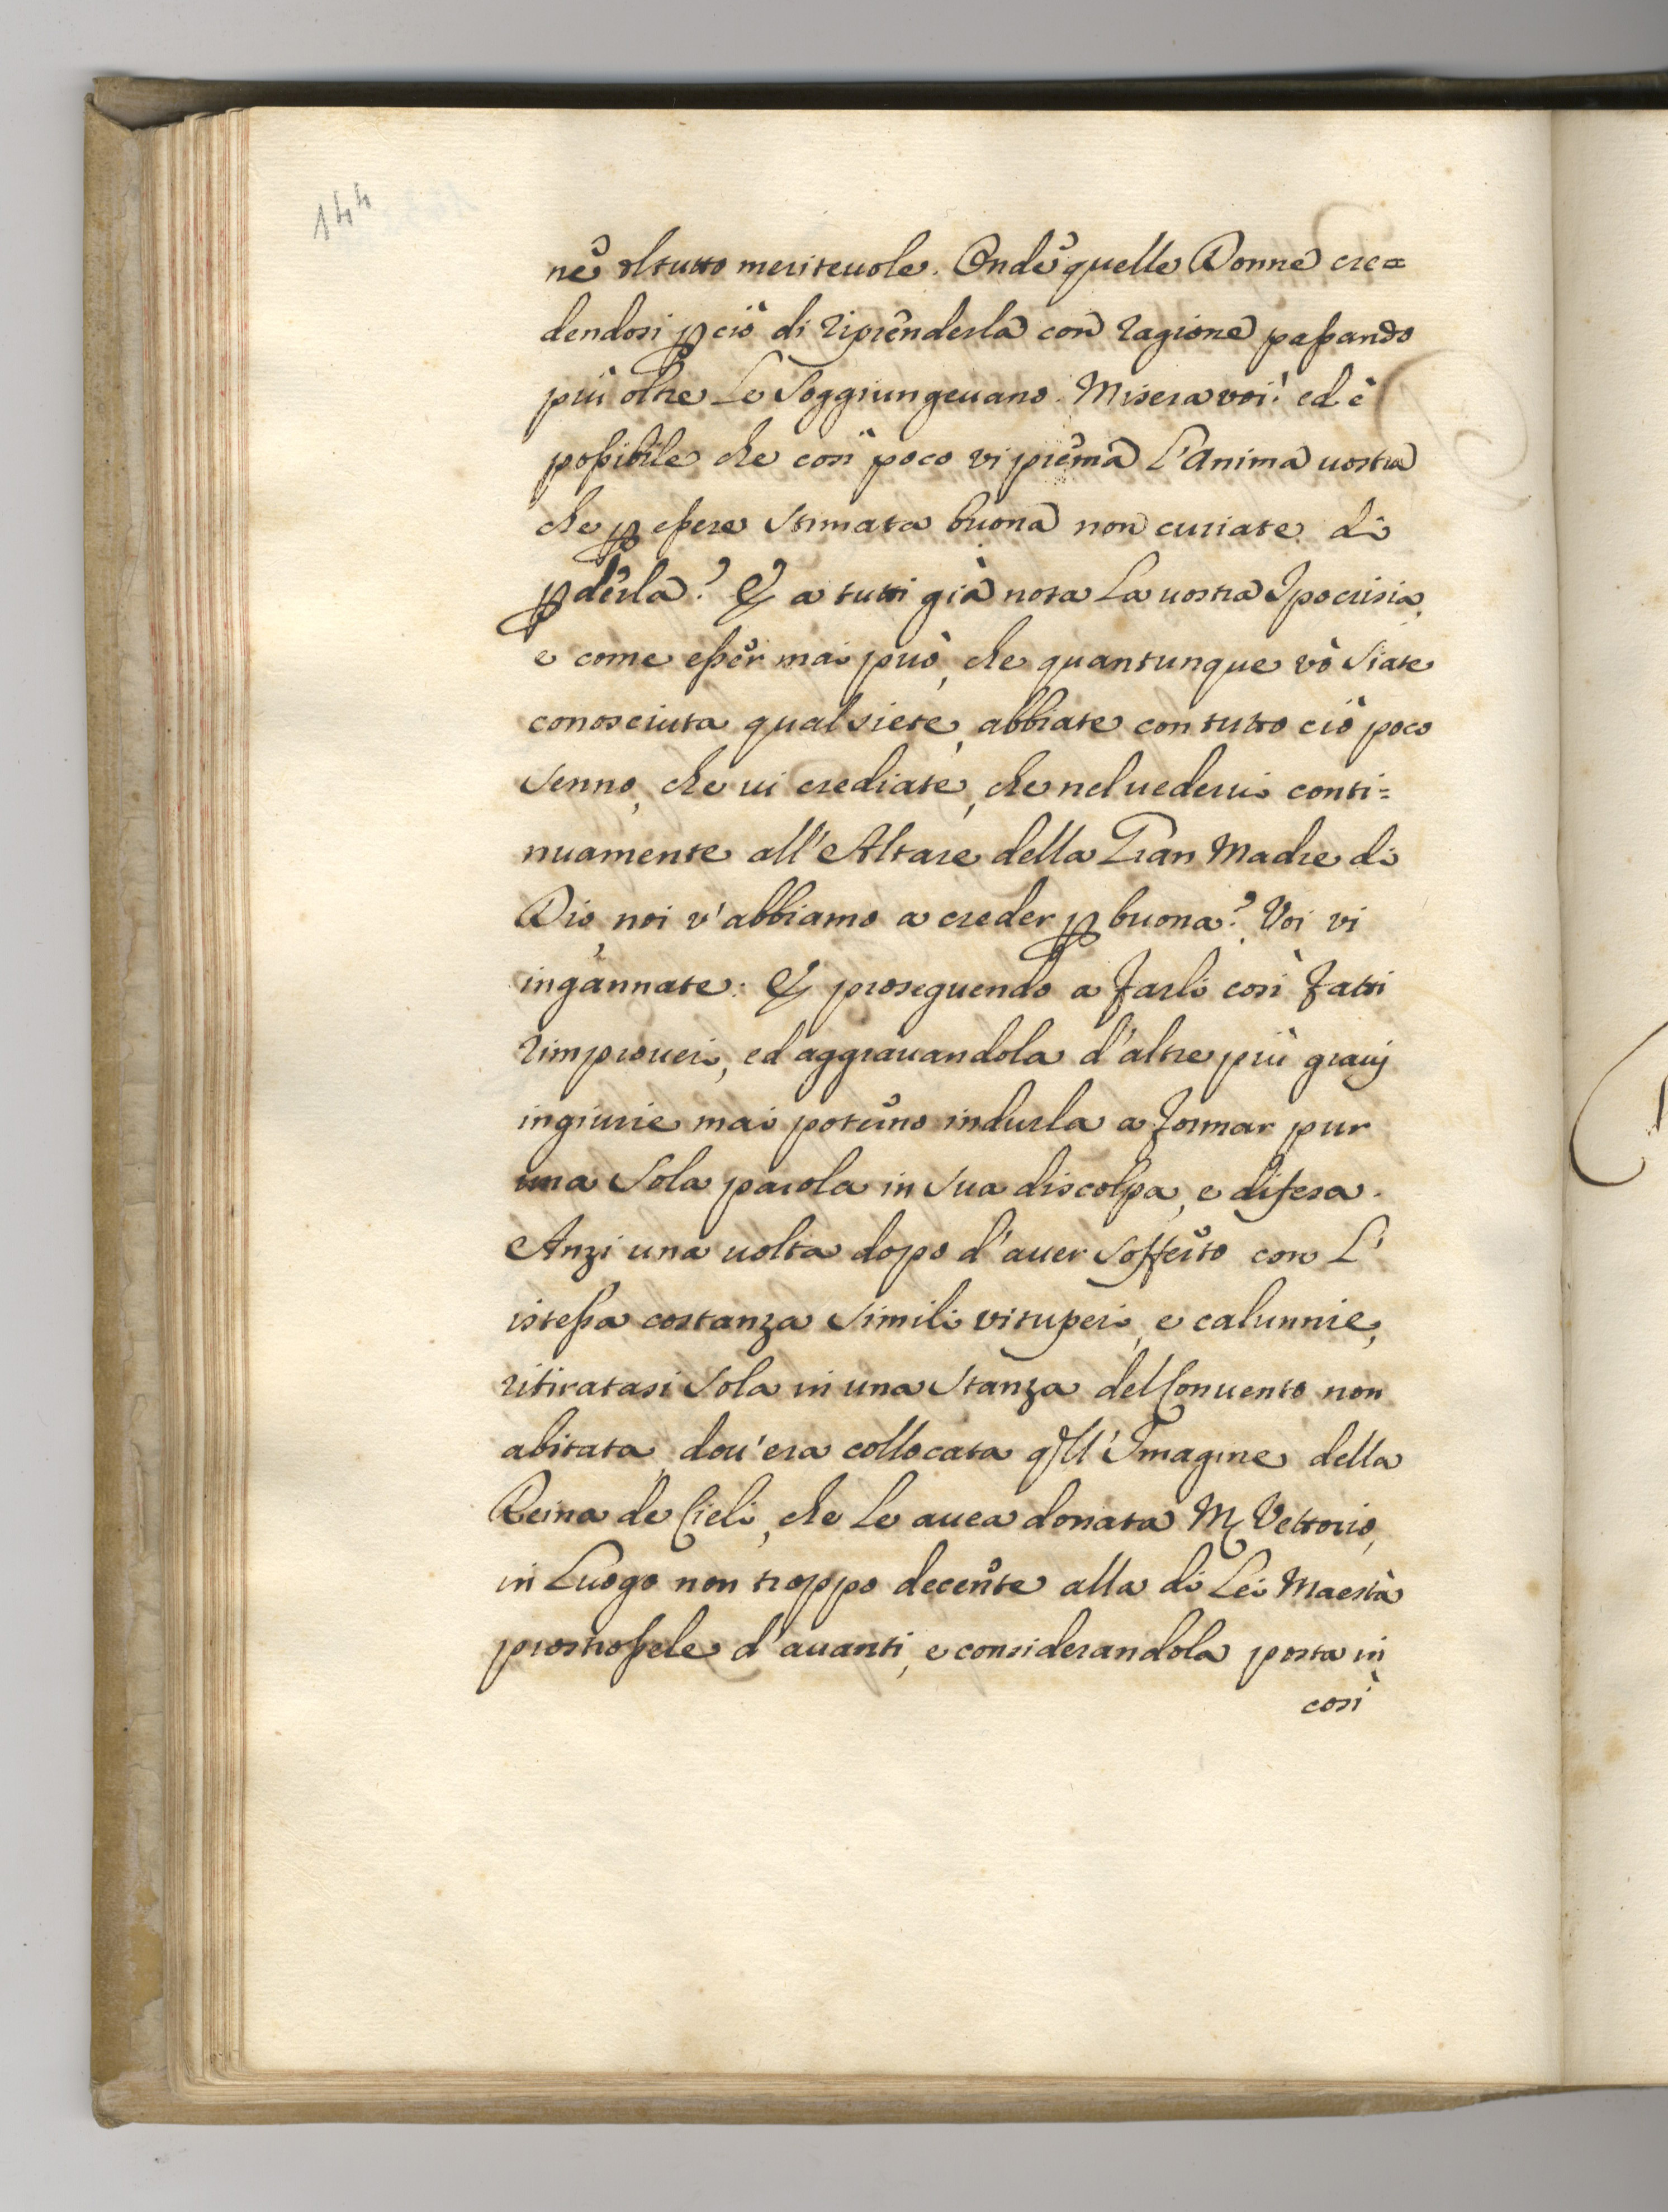 144
ne al tutto meriteuole. Onde quelle Donne cre=
dendosi ꝑ ciò di riprenderla con ragione paßando
più oltre Le Soggiungeuano. Misera voi! ed è
poßibile che così poco vi prema L'Anima uostra
che ꝑ eßere Stimata buona non curiate di
ꝑderla? E a tutti già nota La uostra Ipocrisia,
e come eßer mai può, che quantunque vò Siate
conosciuta qual siete, abbiate con tutto ciò poco
Senno, che ui crediate, che nel uederui conti=
nuamente all'Altare della Gran Madre di
Dio, noi v'abbiamo a creder ꝑ buona? Voi vi
ingannate: E proseguendo a farli così fatti
rimproueri, ed aggrauandola d'altre più grauj
ingiurie mai poterno indurla a formar pur
una Sola parola in Sua discolpa, e difesa.
Anzi una uolta dopo d'auer Sofferto con L'
isteßa costanza Simili vituperi, e calunnie,
ritiratasi Sola in una Stanza del Conuento non
abitata, dou'era collocata qll'Imagine della
Reina de Cieli, che Le auea donata M Vettorio,
in Luogo non troppo decente alla di Lei Maestà
prostroßele d'auanti, e considerandola posta in
così